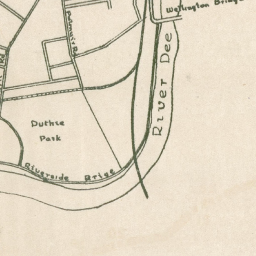 Wellington Bridge
RIVER DEE
Duthie
Park
Riverside Drive